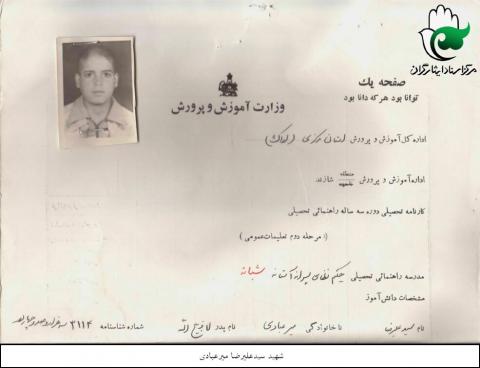 مرکز اسناد ایثارگران
صفحه یك
توانا بود هر که دانا بود
وزارت آموزش و پرورش
اداره کل آموزش و پرورش استان مرکزی (اراک)
اداره آموزش و پرورش منطقه شازند
کارنامه تحصیلی دوره سه ساله راهنمائی تحصیلی
(مرحله دوم تعلیمات عمومی)
مدرسه راهنمائی تحصیلی حکیم نظامی پسرانه آستانه شبانه
مشخصات دانش آموز
نام سید علیرضا نام خانوادگی میرعبادی نام پدر فرج الله شماره شناسنامه ۳۱۱۴
شهید سیدعلیرضا میرعبادی